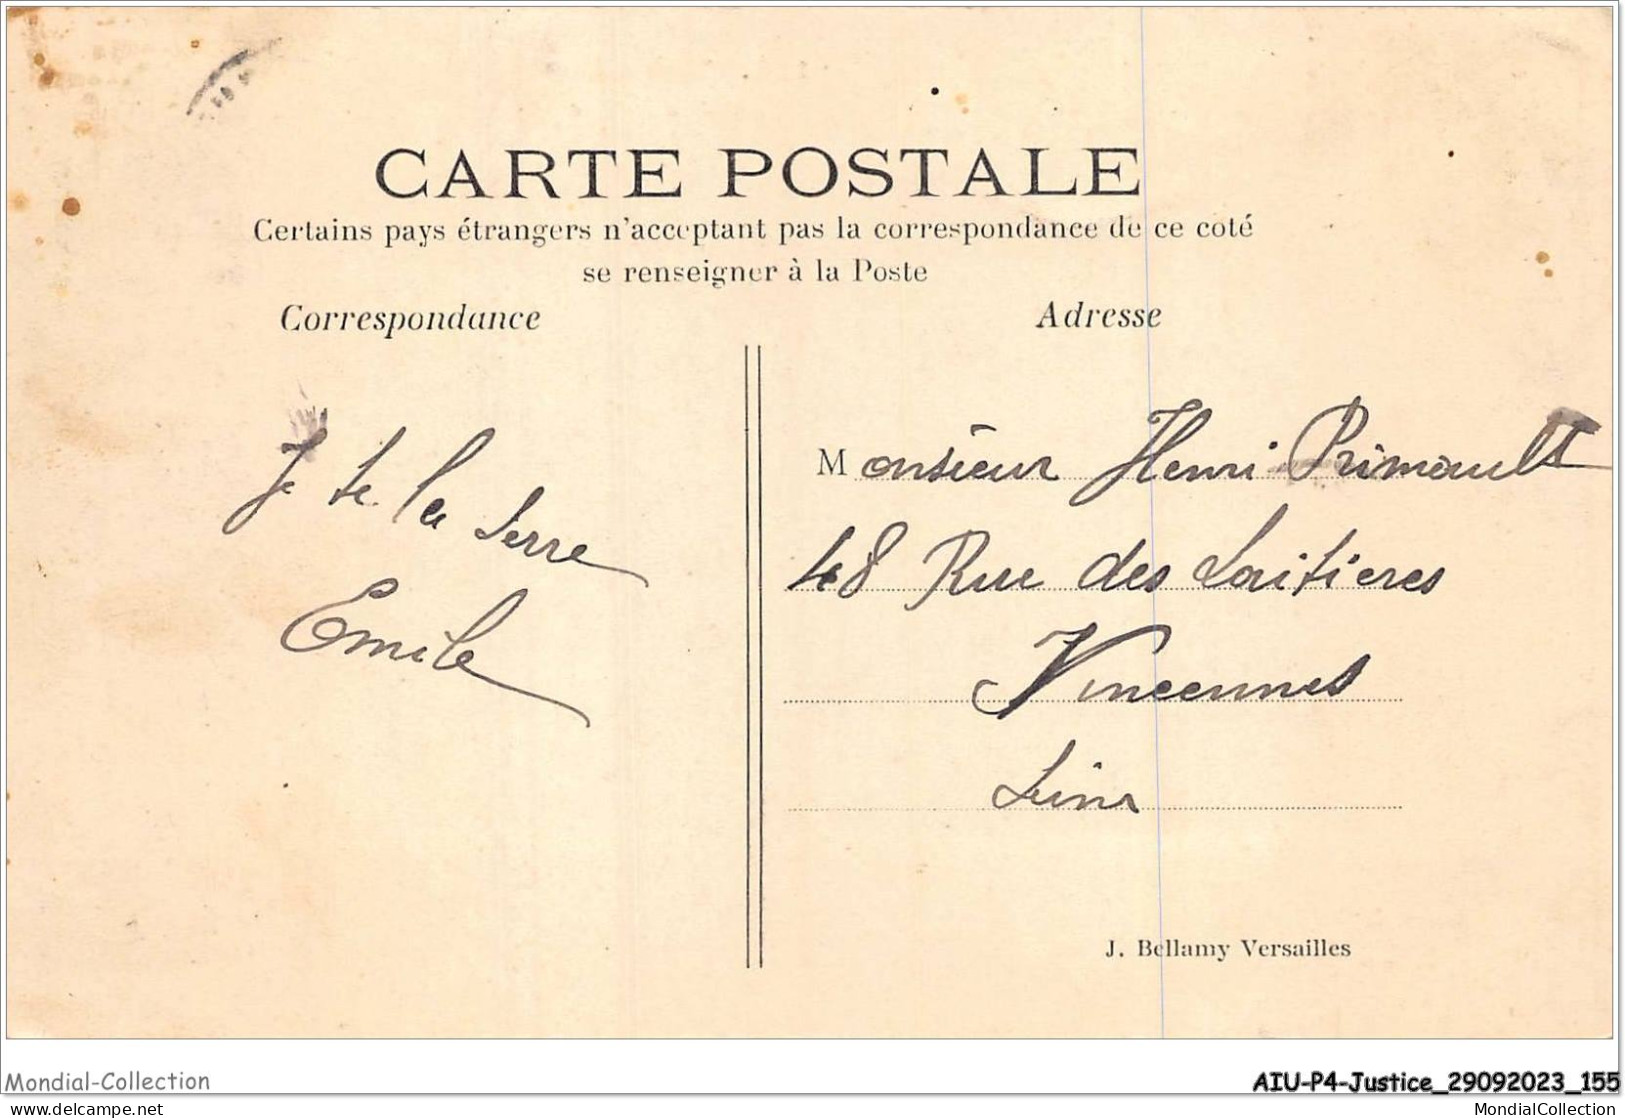 CARTE POSTALE
Certains pays étrangers n'acceptant pas la correspondance de ce coté
se renseigner à la Poste
Correspondance
Adresse
Je te la serre
Emile
Monsieur Henri Primault
48 Rue des Laitieres
Vincennes
Seine
J. Bellamy Versailles
Mondial-Collection
AIU-P4-Justice_29092023_155
www.delcampe.net
MondialCollection